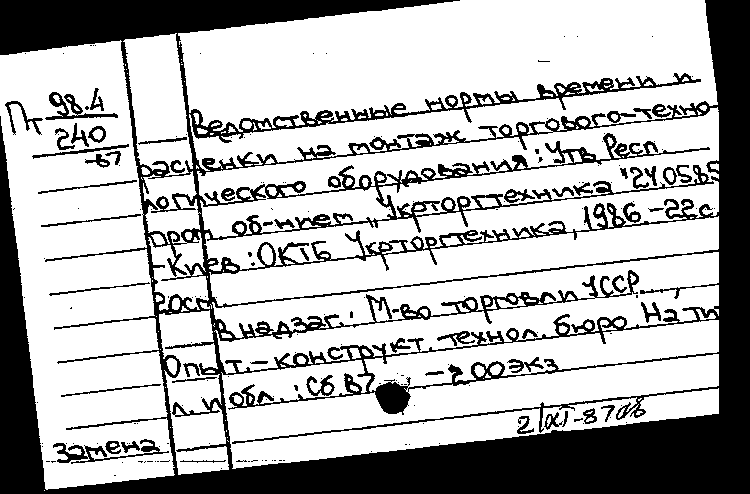 Пт 98.4
240
-87
Ведомственные нормы времени и
расценки на монтаж торгового-техно-
логического оборудования: Утв. Респ.
пром. об-нием „Укрторгтехника" 24.05.85
- Киев: ОКТБ Укрторгтехника, 1986. - 22 с.
20см.
В надзаг.: М-во торговли УССР.,
Опыт.-конструкт. технол. бюро. На тит.
л. и обл.: Сб. В7 - 200 экз
Замена
2/XI-87